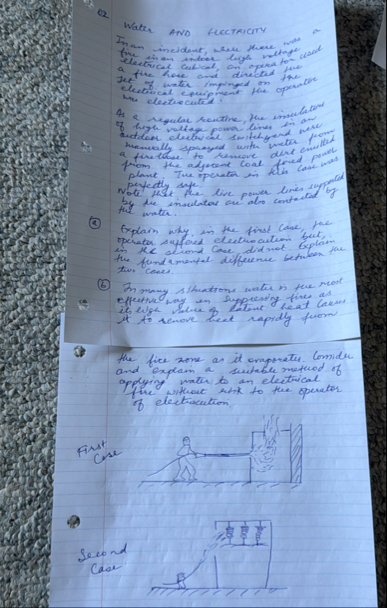 Q2
Water AND ELECTRICITY
In an incident, where there was a
fire in an indoor high voltage
electrical cubical, an operator used
a fire hose and directed the
jet of water impinged on the
electrical equipment the operator
was electrocuted.
As a regular routine, the insulators
of high voltage power lines in an
outdoor electrical switchyard were
manually sprayed with water from
a fire hose to remove dust emitted
from the adjacent coal fired power
plant. The operator in this case was
perfectly safe.
Note that the live power lines supported
by the insulators are also contacted by
the water.
(a) Explain why, in the first case, the
operator suffered electrocution but,
in the second case did not. Explain
the fundamental difference between the
two cases.
(b) In many situations water is the most
effective way in suppressing fires as
its high value of latent heat causes
it to remove heat rapidly from
the fire zone as it evaporates. Consider
and explain a suitable method of
applying water to an electrical
fire without risk to the operator
of electrocution.
First
Case
Second
Case